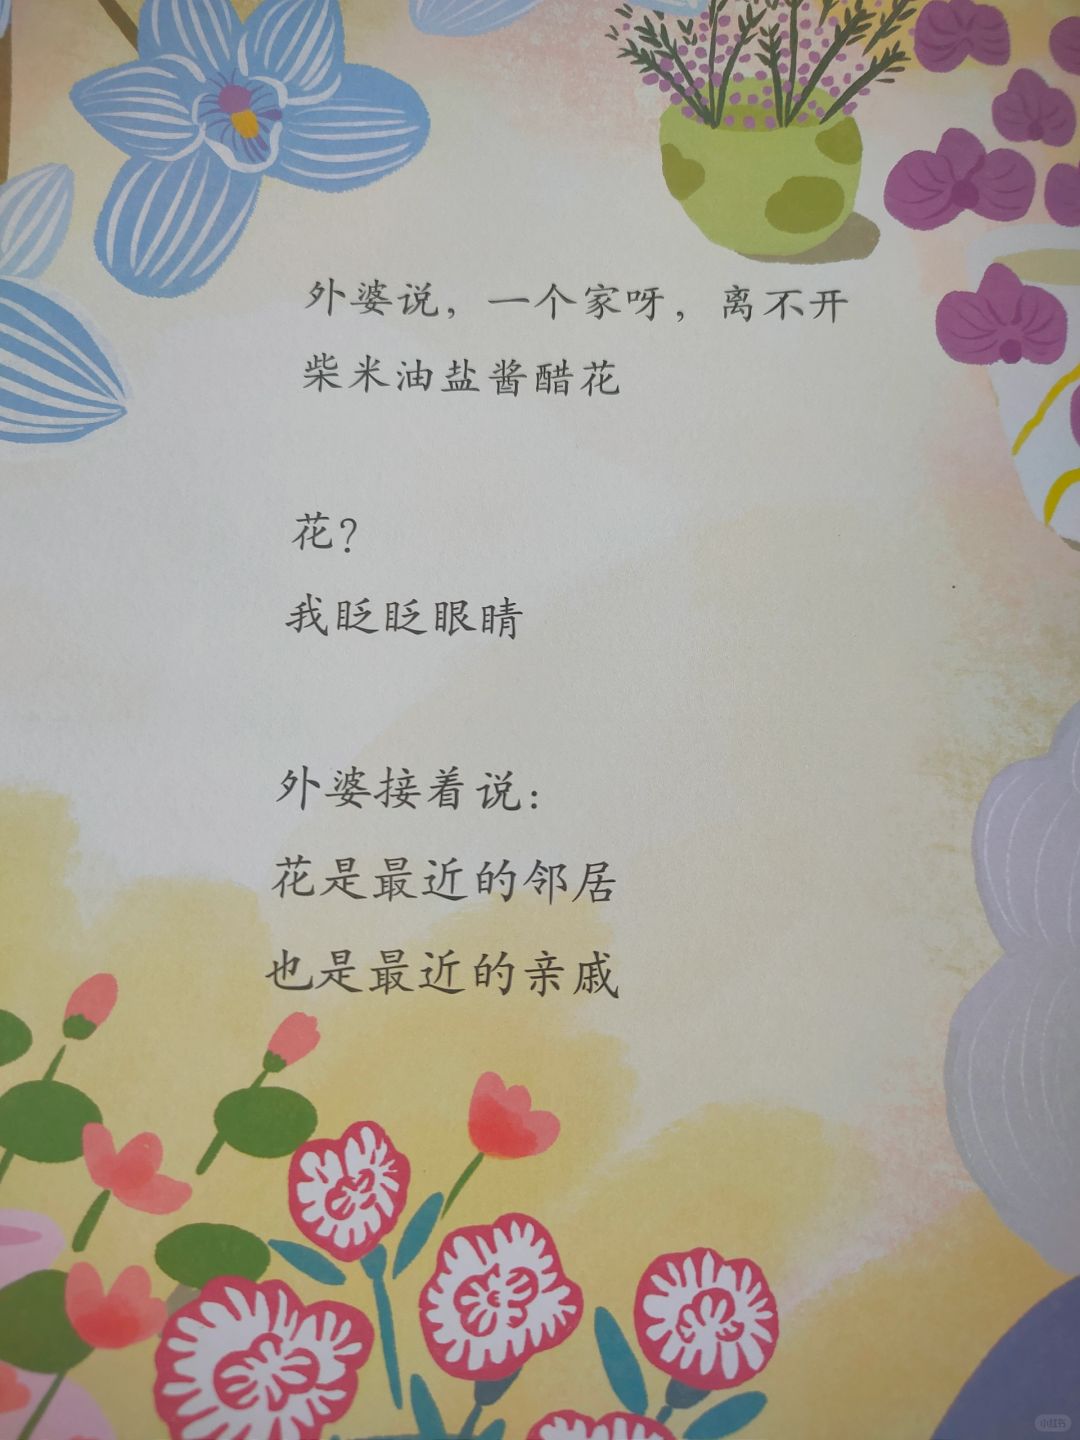 外婆说，一个家呀，离不开
柴米油盐酱醋花
花？
我眨眨眼睛
外婆接着说：
花是最近的邻居
也是最近的亲戚
小红书